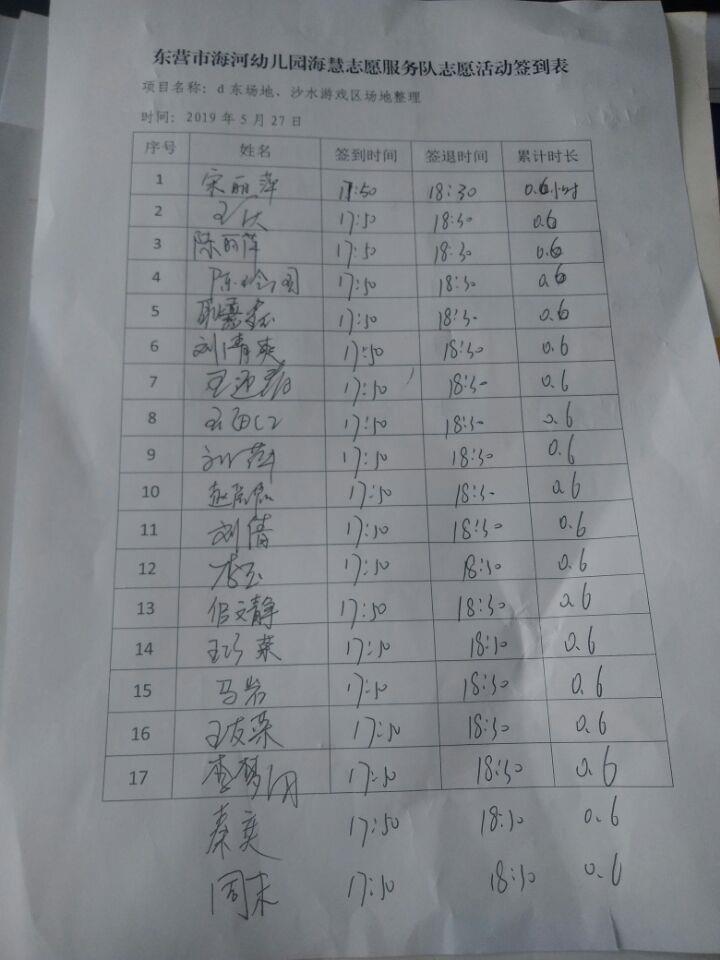 东营市海河幼儿园海慧志愿服务队志愿活动签到表
项目名称：d 东场地、沙水游戏区场地整理
时间：2019 年 5 月 27 日
序号 姓名 签到时间 签退时间 累计时长
1 宋丽萍 17:50 18:30 0.6小时
2 17:50 18:30 0.6
3 陈丽萍 17:50 18:30 0.6
4 陈 17:50 18:30 0.6
5 17:50 18:30 0.6
6 刘清爽 17:50 18:30 0.6
7 王 17:50 18:30 0.6
8 17:50 18:30 0.6
9 刘萍 17:50 18:30 0.6
10 赵 17:50 18:30 0.6
11 刘倩 17:50 18:30 0.6
12 李玉 17:50 18:30 0.6
13 侣文静 17:50 18:30 0.6
14 王巧荣 17:50 18:30 0.6
15 马岩 17:50 18:30 0.6
16 王友荣 17:50 18:30 0.6
17 李梦 17:50 18:30 0.6
秦奕 17:50 18:30 0.6
周末 17:50 18:30 0.6